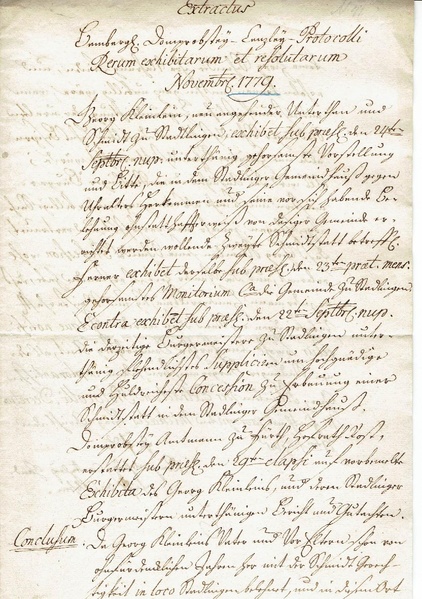 Extractus
Bambergl. Domprobstey-Canzley-Protocolli
Rerum exhibitarum et resolutarum
Novembr. 1779.
Georg Kleinlein, neu angehender Unterthan und
Schmidt zu Stadlingen, exhibet sub præs. den 24ten
Septbr. nup. unterthänig gehorsamste Vorstellung
und Bitte, die in dem Stadlinger Gemeindhauß gegen
uraltes Herkommen und seine vor sich habende Be-
lehnung ohnstatthafterweiß von dasiger Gemeinde er-
richtet werden wollende zweyte Schmidtstatt betreffl.
Ferner exhibet derselbe sub præs. den 23ten præt. mens.
gehorsamstes Monitorium Ca die Gemeinde zu Stadlingen.
Econtra exhibet sub præs. den 22ten Septbr. nup.
die derzeitige Burgermeistere zu Stadlingen unter-
thänig flehendliches Supplicium um hochgnädige
und huldreicheste Concession zu Erbauung einer
Schmidtstatt in dem Stadlinger Gemeindhauß.
Domprobstey Amtmann zu Fürth, Hofrath
erstattet sub præs. den elapsi auf vorbemelte
Exhibita des Georg Kleinleins, und deren Stadlinger
Burgermeistern unterthänigen Bericht und Gutachten.
Conclusum. Da Georg Kleinleins Vater und Vor Eltern schon von
ohnfürdenklichen Jahren her mit der Schmidt Gerech-
tigkeit in loco Stadlingen belehnt, und in diesem Ort